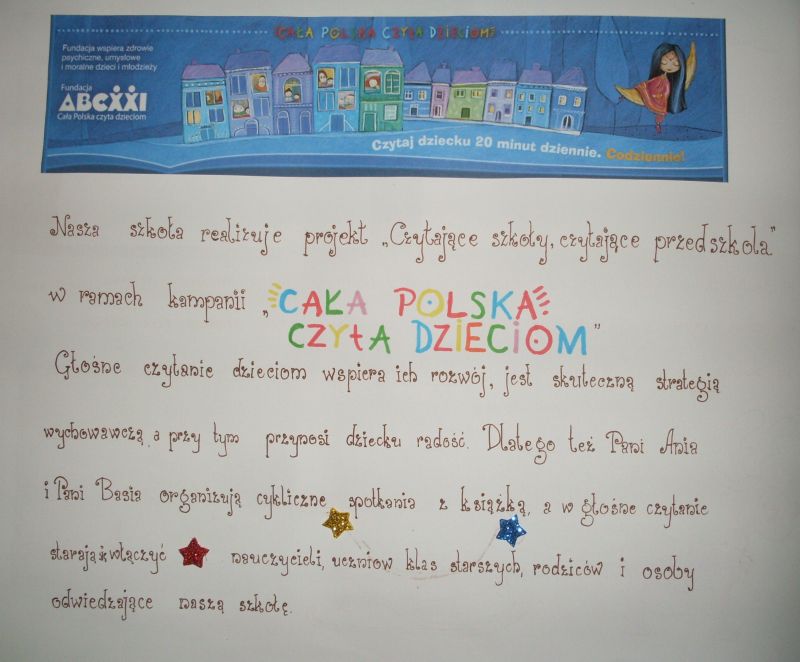 CAŁA POLSKA CZYTA DZIECIOM
Fundacja wspiera zdrowie
psychiczne, umysłowe
i moralne dzieci i młodzieży
Fundacja
ABCXXI
Cała Polska czyta dzieciom
Czytaj dziecku 20 minut dziennie. Codziennie!
Nasza szkoła realizuje projekt „Czytające szkoły, czytające przedszkola"
w ramach kampanii „CAŁA POLSKA
CZYTA DZIECIOM"
Głośne czytanie dzieciom wspiera ich rozwój, jest skuteczną strategią
wychowawczą, a przy tym przynosi dziecku radość. Dlatego też Pani Ania
i Pani Basia organizują cykliczne spotkania z książką, a w głośne czytanie
starają się włączyć nauczycieli, uczniów klas starszych, rodziców i osoby
odwiedzające naszą szkołę.